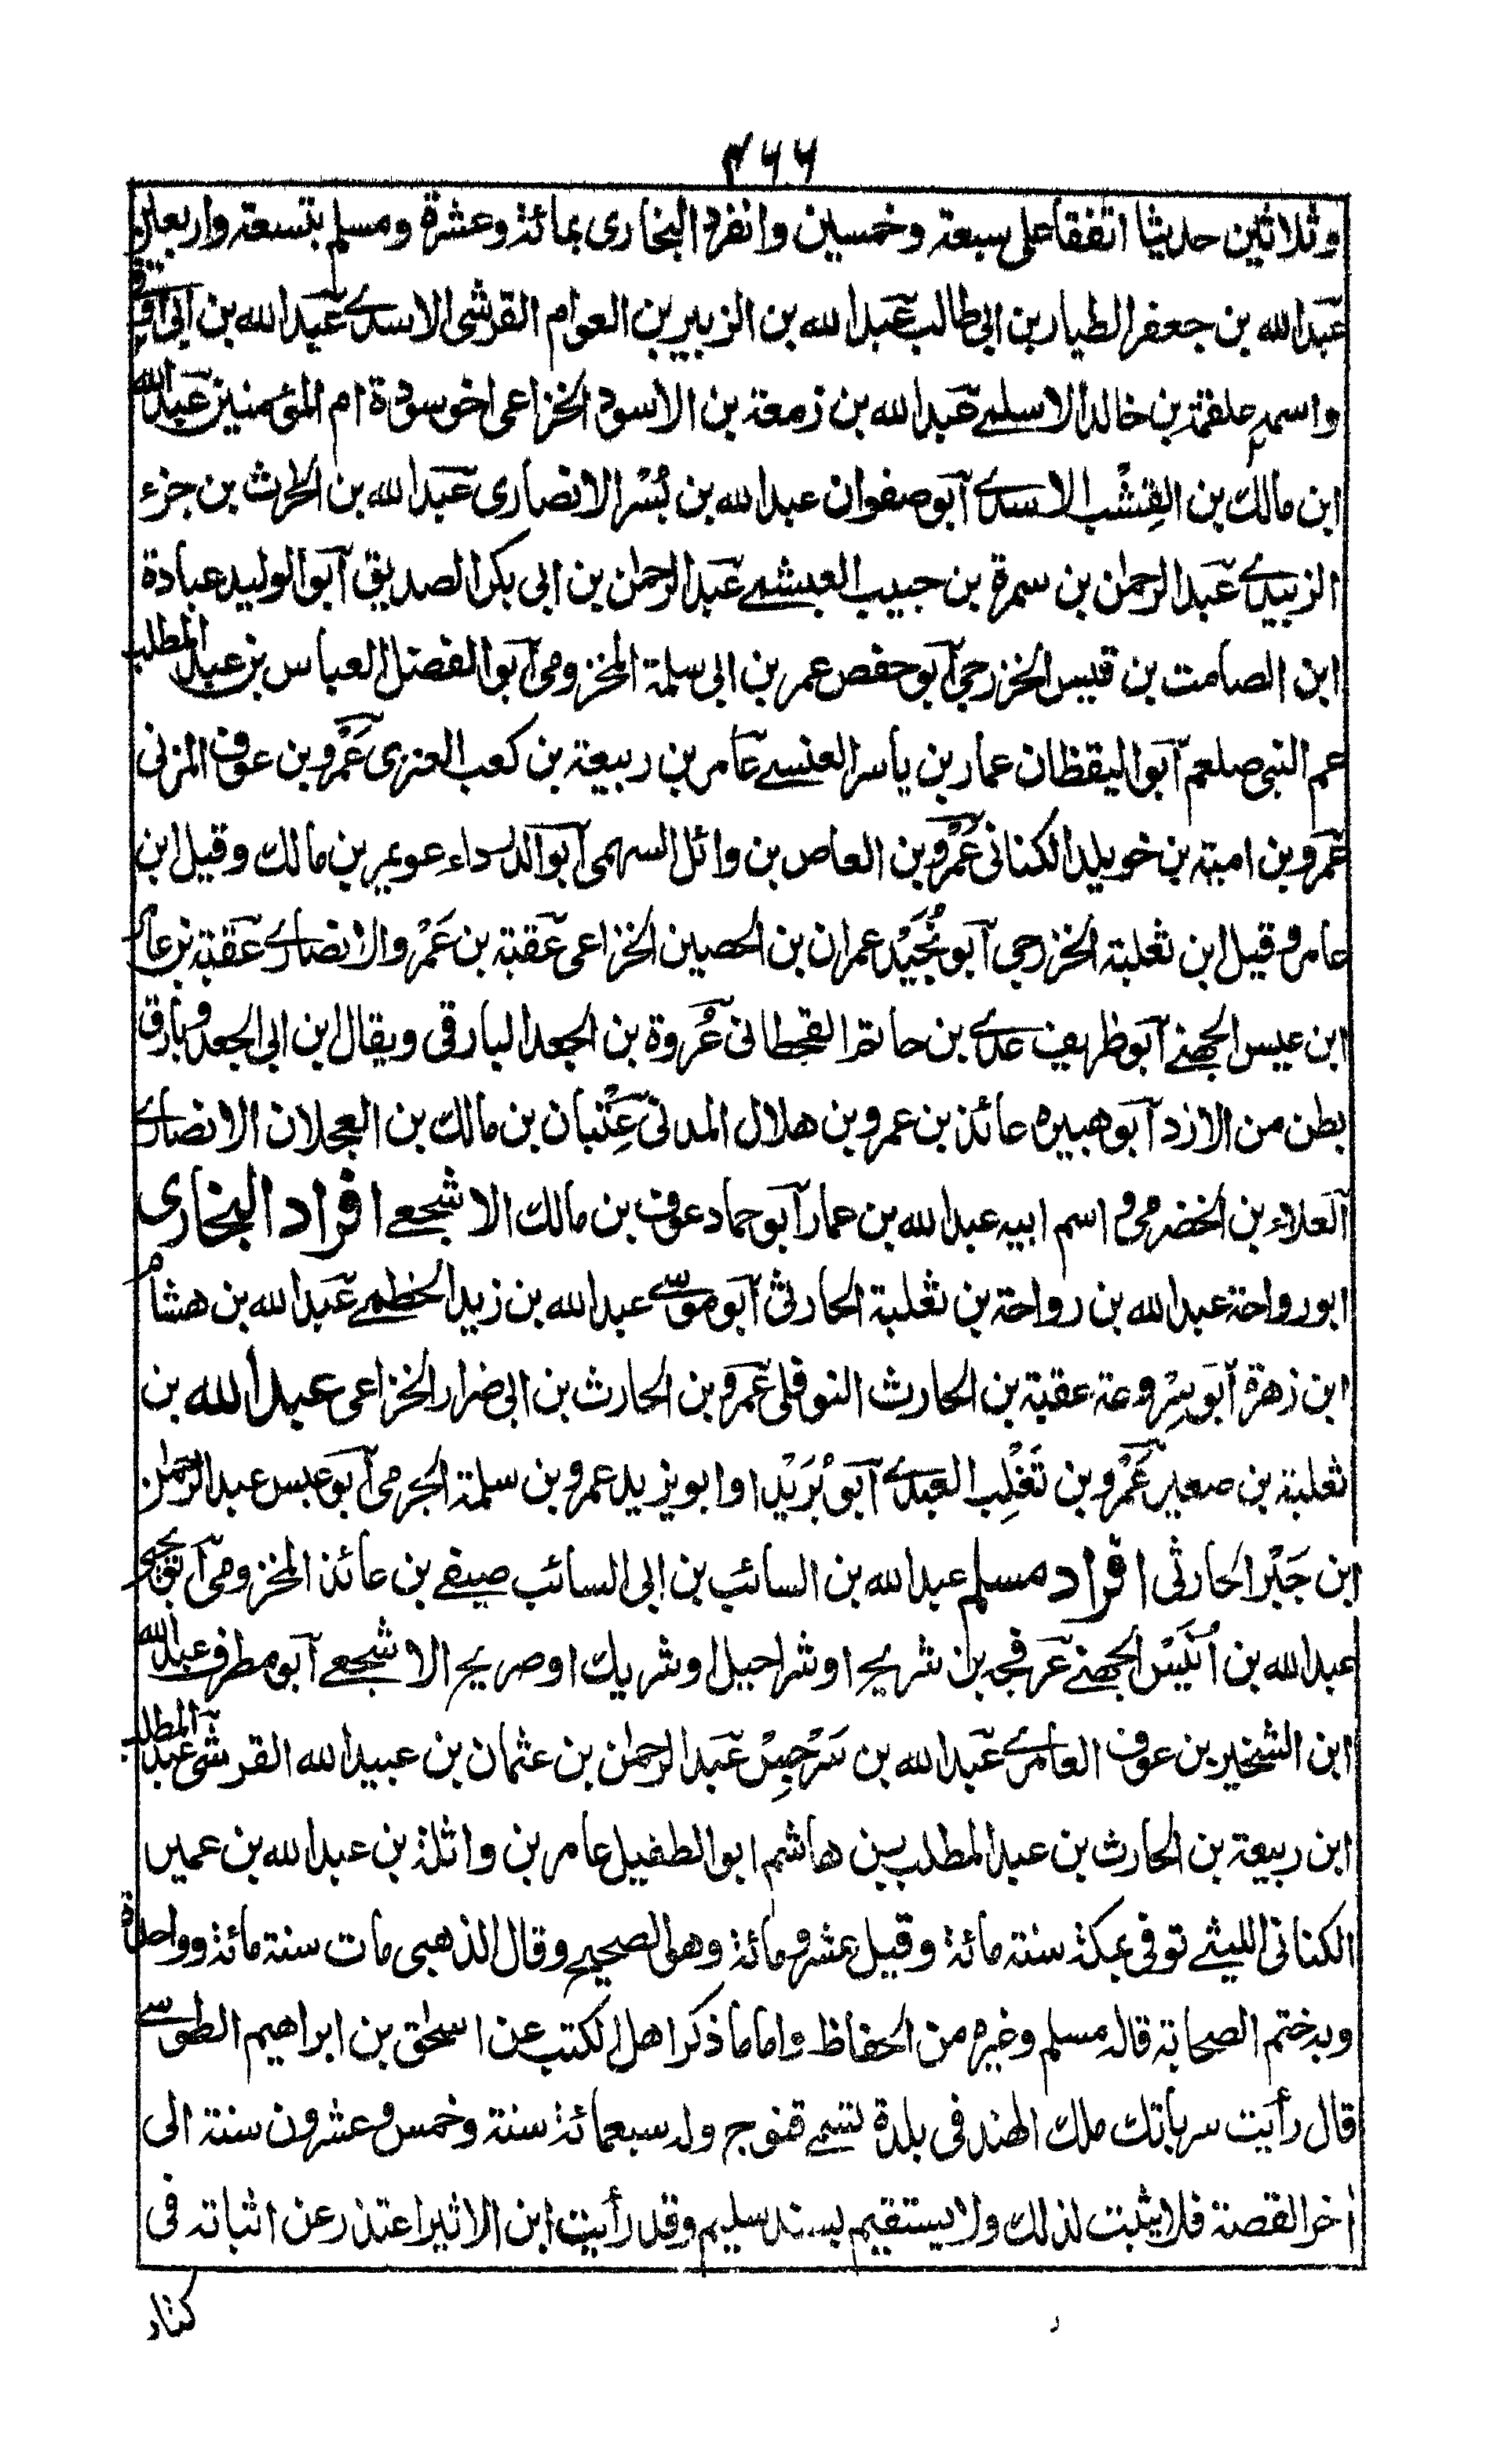 ٤٦٦
وثلاثين حديثا اتفقا على سبعة وخمسين وانفرد البخاري بمائة وعشرة ومسلم بتسعة واربعين
عبد الله بن جعفر الطيار بن ابي طالب عبد الله بن الزبير بن العوام القرشي الاسدي عبد الله بن ابي اوفى
واسمه علقمة بن خالد الاسلمي عبد الله بن زمعة بن الاسود الخزاعي اخو سودة ام المؤمنين عبد الله
ابن مالك بن القِشْب الاسدي ابو صفوان عبد الله بن بُسْر الانصاري عبد الله بن الحرث بن جزء
الزبيدي عبد الرحمن بن سمرة بن حبيب العبشمي عبد الرحمن بن ابي بكر الصديق ابو الوليد عبادة
ابن الصامت بن قيس الخزرجي ابو حفص عمر بن ابي سلمة المخزومي ابو الفضل العباس بن عبد المطلب
عم النبي صلعم ابو اليقظان عمار بن ياسر العنسي عامر بن ربيعة بن كعب العنزي عَمْرو بن عوف المزني
عمرو بن امية بن خويلد الكناني عَمْرو بن العاص بن وائل السهمي ابو الدرداء عويمر بن مالك وقيل ابن
عامر وقيل ابن ثعلبة الخزرجي ابو نُجَيْد عمران بن الحصين الخزاعي عقبة بن عَمْرو الانصاري عقبة بن عامر
ابن عبس الجهني ابو ظريف عدي بن حاتم القحطاني عُرْوة بن الجعد البارقي ويقال ابن ابي الجعد وبارق
بطن من الازد ابو هبيره عائذ بن عمرو بن هلال المدني عِتْبان بن مالك بن العجلان الانصاري
العلاء بن الحضرمي واسم ابيه عبد الله بن عمار ابو حماد عوف بن مالك الاشجعي افراد البخاري
ابو رواحة عبد الله بن رواحة بن ثعلبة الحارثي ابو موسى عبد الله بن زيد الخطمي عبد الله بن هشام
ابن زهرة ابو سِرْوعة عقبة بن الحارث النوفلي عمرو بن الحارث بن ابي ضرار الخزاعي عبد الله بن
ثعلبة بن صعير عَمْرو بن تَغْلِب العبدي ابو بُرَيْد او ابو يزيد عمرو بن سلمة الجرمي ابو عبس عبد الرحمن
ابن جَبْر الحارثي افراد مسلم عبد الله بن السائب بن ابي السائب صيفي بن عائذ المخزومي ابو يحيى
عبد الله بن اُنَيْس الجهني عرفجة بن شريح او شراحيل او شريك او صريح الاشجعي ابو مطرف عبد الله
ابن الشخير بن عوف العامري عبد الله بن سَرْجِسْ عبد الرحمن بن عثمان بن عبيد الله القرشي عبد المطلب
ابن ربيعة بن الحارث بن عبد المطلب بن هاشم ابو الطفيل عامر بن واثلة بن عبد الله بن عمير
الكناني الليثي توفي بمكة سنة مائة وقيل عشر ومائة وهو الصحيح وقال الذهبي مات سنة مائة وواحدة
وبه ختم الصحابة قاله مسلم وغيره من الحفاظ واما ما ذكر اهل الكتب عن اسحق بن ابراهيم الطوسي
قال رأيت سرباتك ملك الهند في بلدة تسمى قنوج وله سبعمائة سنة وخمس وعشرون سنة الى
اخر القصة فلا يثبت لذلك ولا يستقيم بسند سليم وقد رأيت ابن الاثير اعتذر عن اثباته في
كتابه